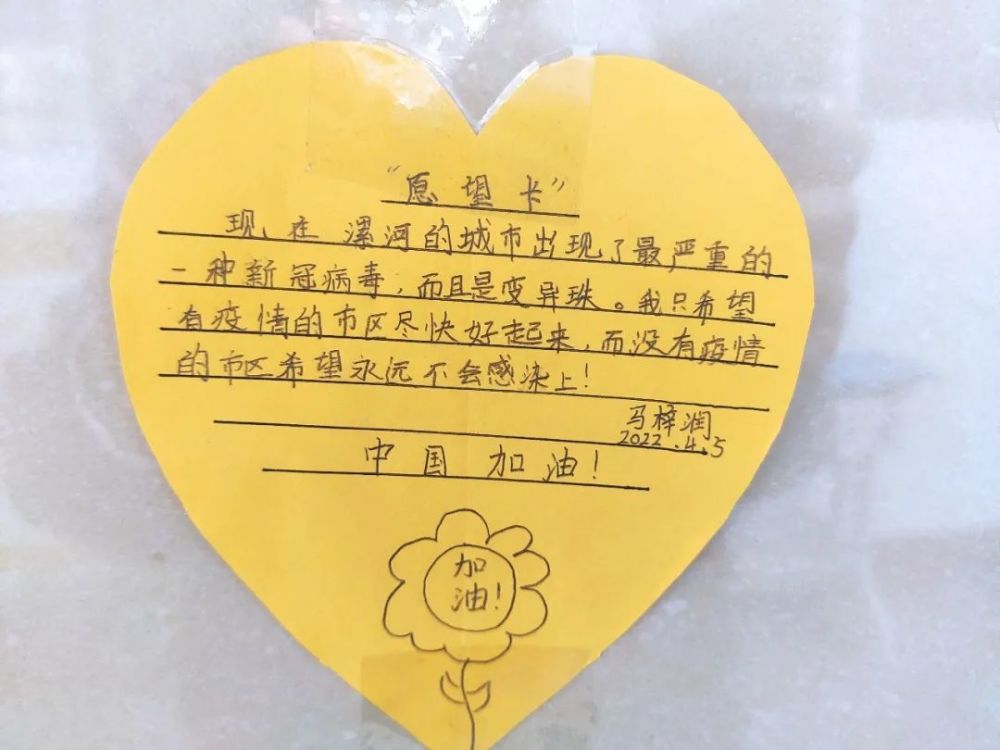 “愿望卡”
现在漯河的城市出现了最严重的
一种新冠病毒，而且是变异珠。我只希望
有疫情的市区尽快好起来，而没有疫情
的市区希望永远不会感染上！
马梓润
2022.4.5
中国加油！
加
油！